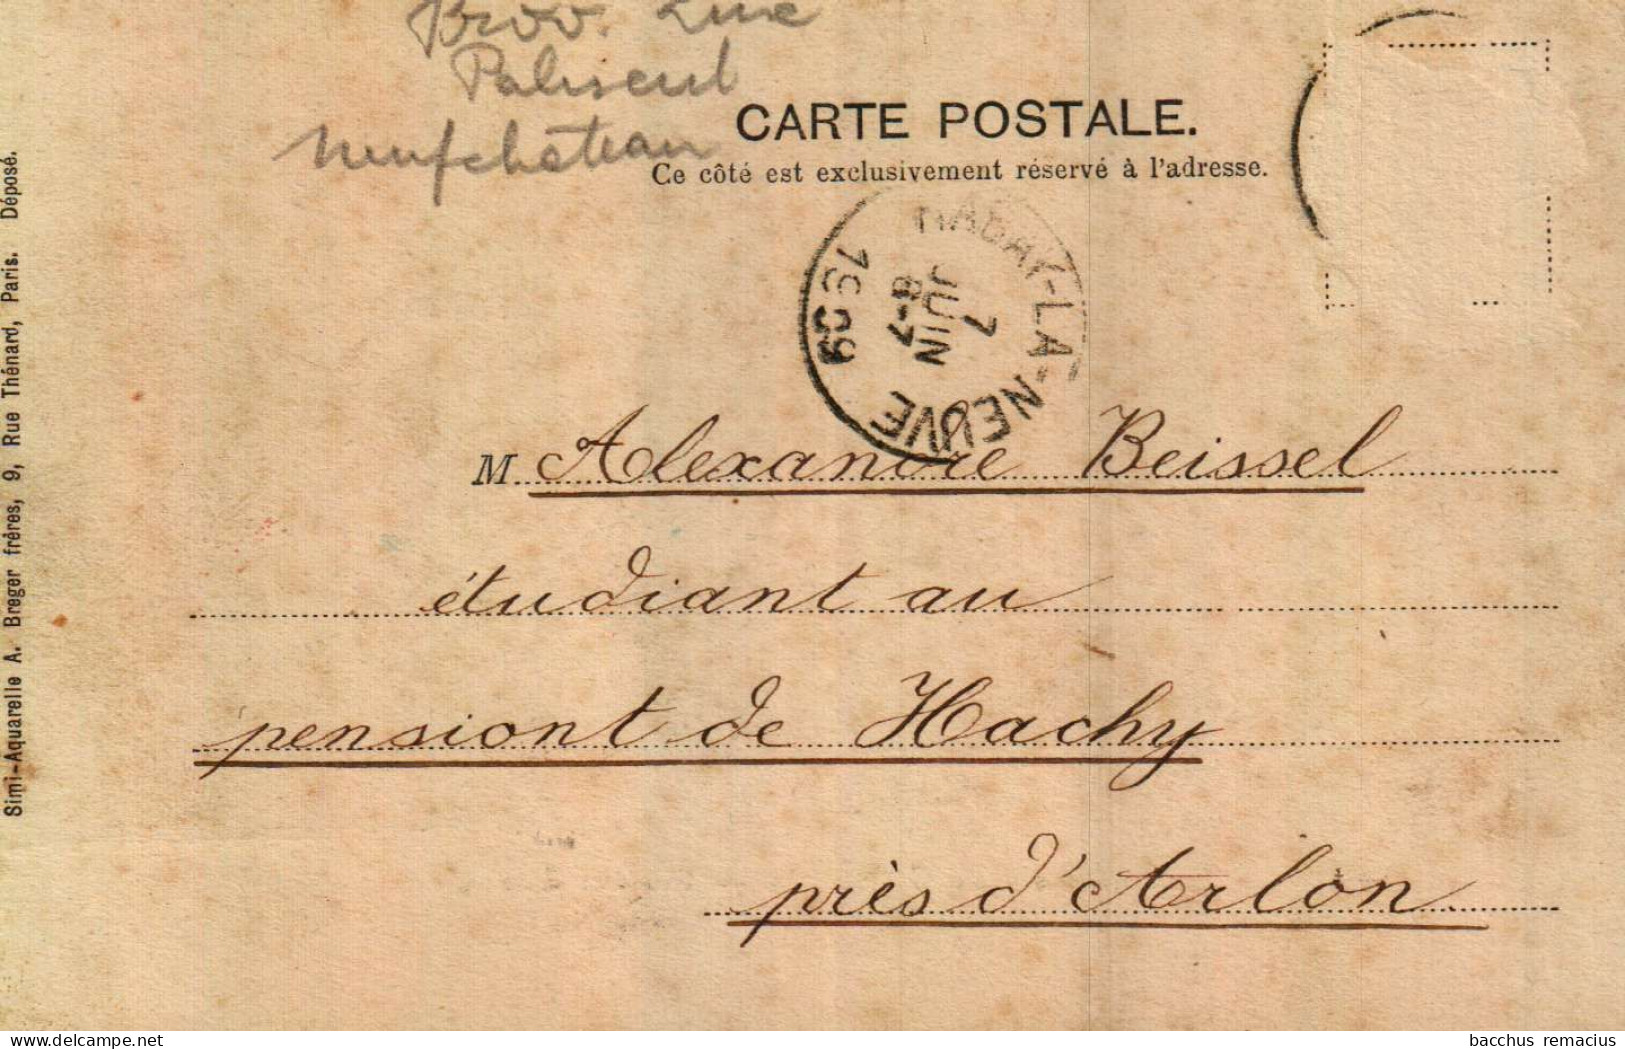 Prov. Lux
Paliseul
Neufchateau
CARTE POSTALE.
Ce côté est exclusivement réservé à l'adresse.
HABAY-LA-NEUVE
8-7
JUIN
7
1909
M Alexandre Beissel
étudiant au
pensiont de Hachy
près d'Arlon
Simi-Aquarelle A. Breger frères, 9, Rue Thénard, Paris. Déposé.
delcampe.net
bacchus remacius